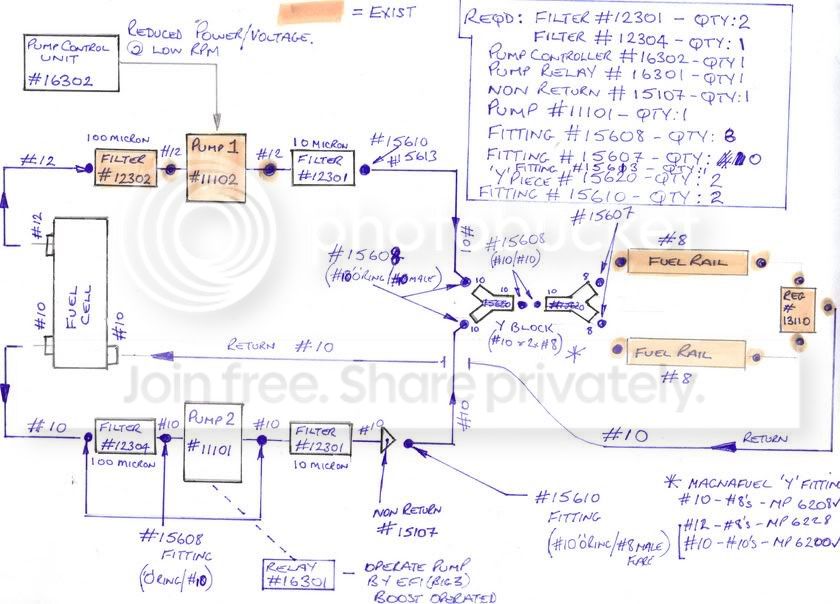 = EXIST
REDUCED POWER/VOLTAGE.
@ LOW RPM
PUMP CONTROL
UNIT
#16302
REQD: FILTER #12301 - QTY: 2
FILTER #12304 - QTY: 1
PUMP CONTROLLER #16302 - QTY 1
PUMP RELAY #16301 - QTY 1
NON RETURN #15107 - QTY: 1
PUMP #11101 - QTY: 1
FITTING #15608 - QTY: 8
FITTING #15607 - QTY: 10
FITTING #15613 - QTY: 1
'Y' PIECE #15620 - QTY: 2
FITTING #15610 - QTY: 2
#12
100 MICRON
FILTER
#12302
#12
PUMP 1
#11102
#12
10 MICRON
FILTER
#12301
#15610
#15613
#10
#12
FUEL
CELL
#10
#10
#15608
(#10 'O' RING/#10 MALE)
#15608
(#10/#10)
#15607
10
10
10
10
8
8
Y BLOCK
(#10 x 2x #8)
*
#8
FUEL RAIL
REG
#
13110
FUEL RAIL
#8
RETURN #10
#10
#10
RETURN
#10
FILTER
#12304
100 MICRON
#10
PUMP 2
#11101
#10
FILTER
#12301
10 MICRON
#10
NON RETURN
#15107
#15610
FITTING
(#10 'O' RING/#8 MALE)
FLARE
#15608
FITTING
('O' RING/#10)
RELAY
#16301
- OPERATE PUMP
BY EFI (RIG3)
BOOST OPERATED
* MAGNAFUEL 'Y' FITTIN
#10 - #8's - MP 6208V
#12 - #8's - MP 6228
#10 - #10's - MP 6200V
photobucket
Join free. Share privately.